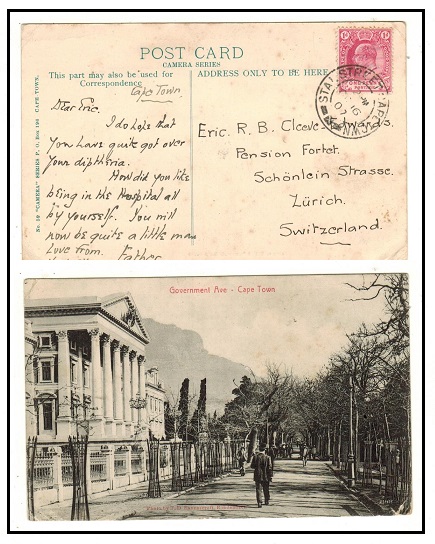 POST CARD
CAMERA SERIES
This part may also be used for Correspondence
ADDRESS ONLY TO BE HERE
Cape Town.
Dear Eric.
I do hope that
you have quite got over
your diptheria.
How did you like
being in the Hospital all
by yourself. You will
now be quite a little man
Love from. Father
Eric. R. B. Cleeve Edwards.
Pension Forter.
Schönlein Strasse.
Zürich.
Switzerland.
No. 10 "CAMERA" SERIES P. O. Box 198 CAPE TOWN.
Government Ave - Cape Town